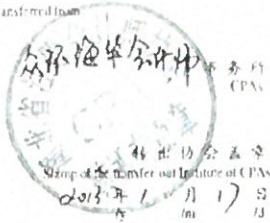 ansferred from
众环海华会计师事务所
CPAs
转出协会盖章
Stamp of the transfer-out Institute of CPAs
2013年1月17日